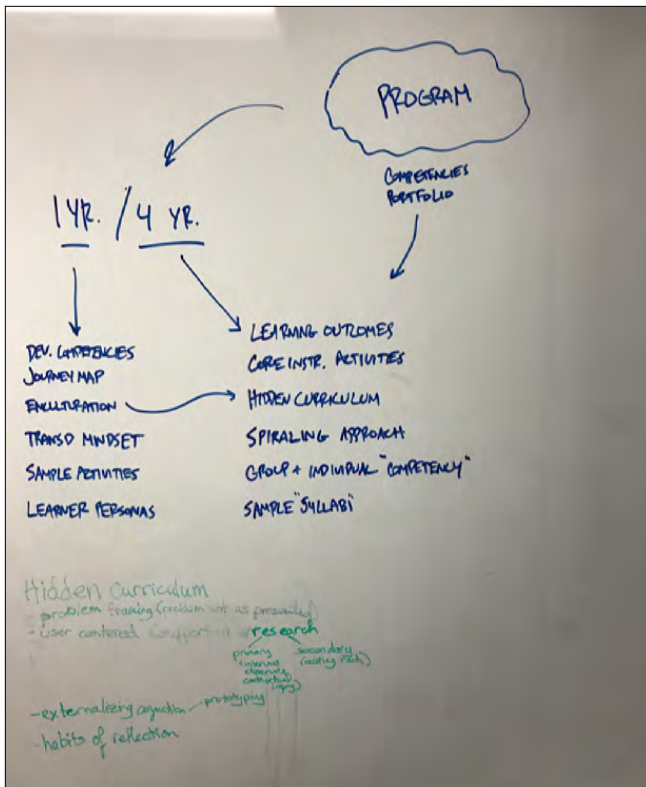 PROGRAM
COMPETENCIES
PORTFOLIO
1 YR. / 4 YR.
DEV. COMPETENCIES
JOURNEY MAP
ENCULTURATION
TRANSD MINDSET
SAMPLE ACTIVITIES
LEARNER PERSONAS
LEARNING OUTCOMES
CORE INSTR. ACTIVITIES
HIDDEN CURRICULUM
SPIRALING APPROACH
GROUP + INDIVIDUAL "COMPETENCY"
SAMPLE "SYLLABI"
Hidden curriculum
- problem framing (problem not as presented)
- user centered research
primary
secondary
contextual
- externalizing cognition - prototyping
- habits of reflection